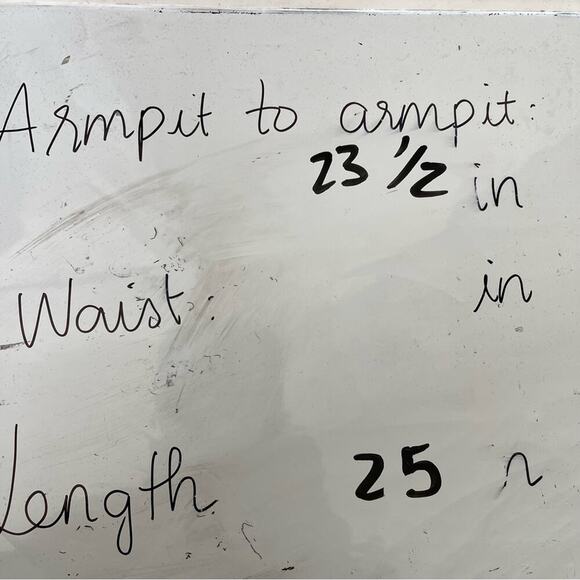 Armpit to armpit:
23 1/2 in
Waist: in
Length 25